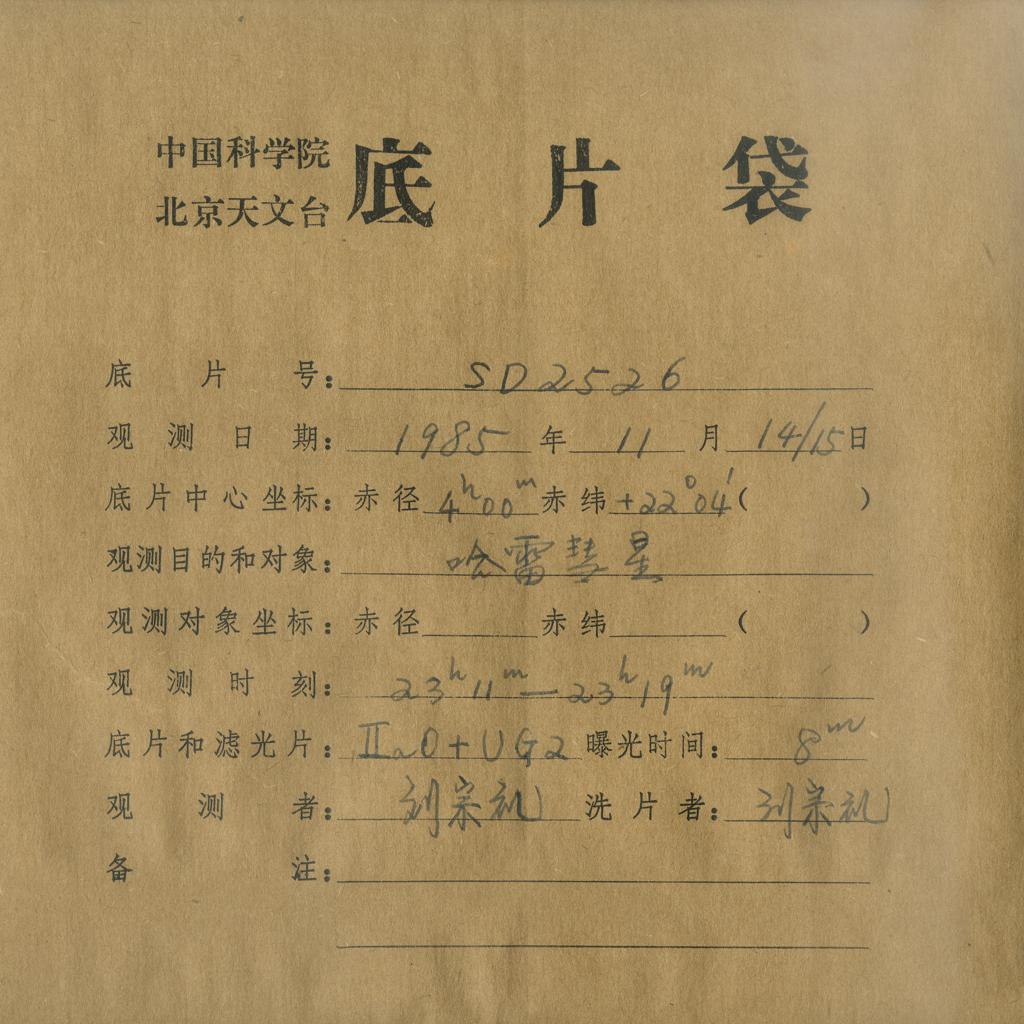 中国科学院
北京天文台
底片袋
底片号：SD2526
观测日期：1985年11月14/15日
底片中心坐标：赤径4ʰ00ᵐ赤纬+22°04′（ ）
观测目的和对象：哈雷彗星
观测对象坐标：赤径 赤纬 （ ）
观测时刻：23ʰ11ᵐ—23ʰ19ᵐ
底片和滤光片：ⅡaO+UG2 曝光时间：8ᵐ
观测者：刘宗礼 洗片者：刘宗礼
备注：